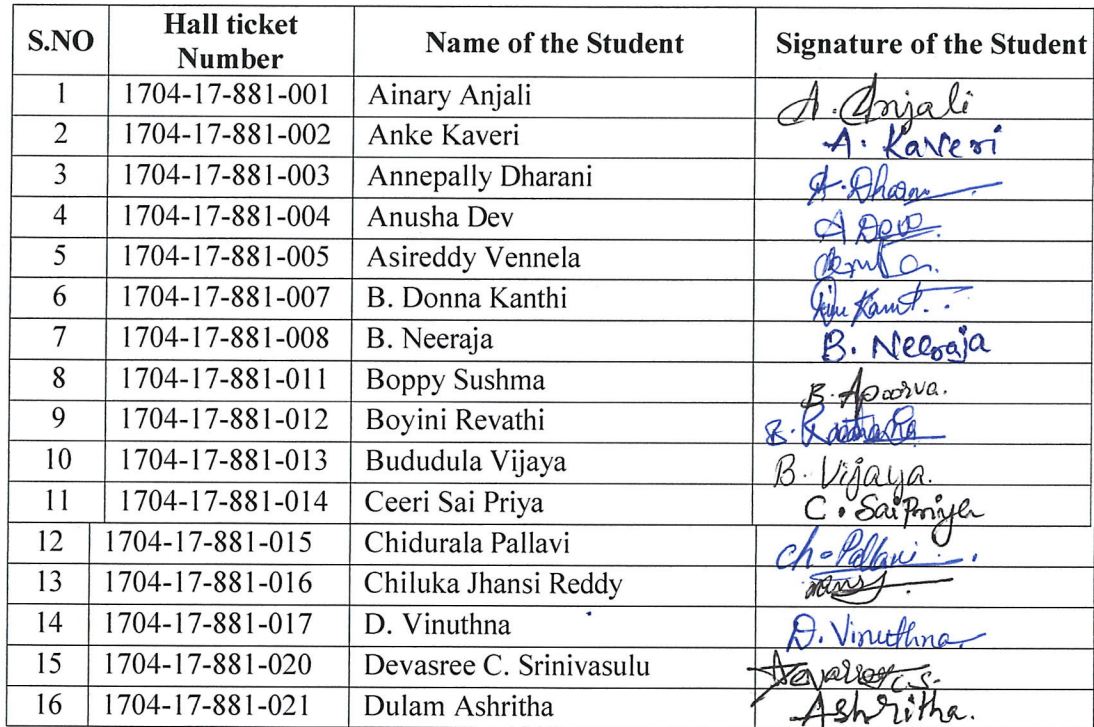 S.NO Hall ticket Number Name of the Student Signature of the Student
1 1704-17-881-001 Ainary Anjali A. Anjali
2 1704-17-881-002 Anke Kaveri A. Kaveri
3 1704-17-881-003 Annepally Dharani A. Dharani
4 1704-17-881-004 Anusha Dev A Dev
5 1704-17-881-005 Asireddy Vennela
6 1704-17-881-007 B. Donna Kanthi
7 1704-17-881-008 B. Neeraja B. Neeraja
8 1704-17-881-011 Boppy Sushma B. Apoorva.
9 1704-17-881-012 Boyini Revathi B.
10 1704-17-881-013 Bududula Vijaya B. Vijaya.
11 1704-17-881-014 Ceeri Sai Priya C. Sai Priya
12 1704-17-881-015 Chidurala Pallavi Ch. Pallavi
13 1704-17-881-016 Chiluka Jhansi Reddy
14 1704-17-881-017 D. Vinuthna D. Vinuthna
15 1704-17-881-020 Devasree C. Srinivasulu
16 1704-17-881-021 Dulam Ashritha Ashritha.